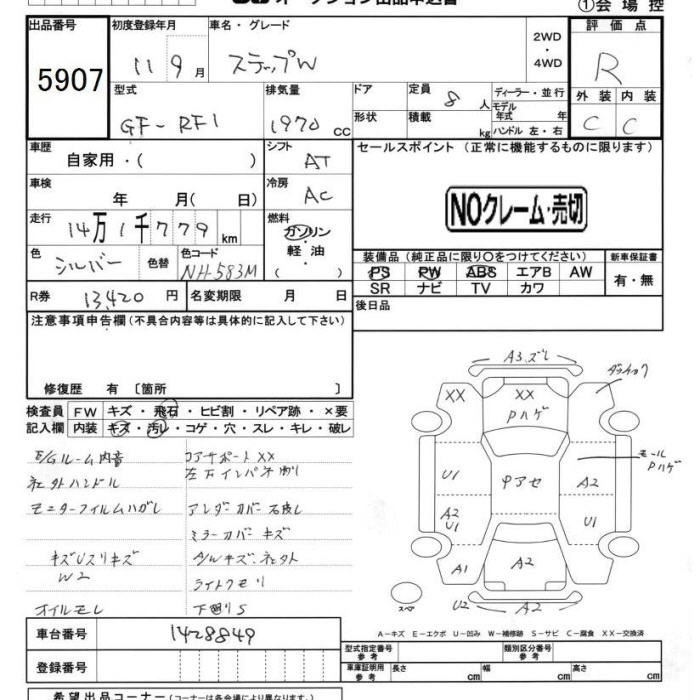 ①会場控
出品番号 初度登録年月 車名・グレード 2WD・4WD 評価点
5907 11 9月 ステップW R
型式 排気量 ドア 定員 ディーラー・並行 外装 内装
GF-RF1 1970 cc 形状 8人 モデル年式 年 C C
積載 kg ハンドル 左・右
車歴 シフト セールスポイント (正常に機能するものに限ります)
自家用・( ) AT
車検 冷房
年 月(日) AC NOクレーム・売切
走行 燃料
14万1千779km ガソリン
色 色替 色コード 軽油
シルバー NH-583M ( ) 装備品(純正品に限り○をつけてください) 新車保証書
PS PW ABS エアB AW 有・無
R券 13,420円 名変期限 月 日 SR ナビ TV カワ
後日品
注意事項申告欄(不具合内容等は具体的に記入して下さい)
修復歴 有〔箇所 〕
検査員 FW キズ・飛石・ヒビ割・リペア跡・×要
記入欄 内装 キズ・汚レ・コゲ・穴・スレ・キレ・破レ
E/Gルーム内音 コアサポートXX
社外ハンドル 左下インパネ割レ
モニターフィルムハガレ アンダーカバー
ミラーカバーキズ
キズUスリキズ A/Wキズ、社外
W2 ライトクモリ
オイルモレ 下廻りS
A3、ズレ
XX XX
Pハゲ
モール
Pハゲ
U1 中アセ A2
A2 U1
U1
A1 A2
スペア U2 A2
A-キズ E-エクボ U-凹み W-補修跡 S-サビ C-腐食 XX-交換済
車台番号 1428849
登録番号
型式指定番号 参考 類別区分番号 参考
車庫証明用 参考 長さ cm 幅 cm 高さ cm
希望出品コーナー(コーナーは各会場により異なります。)